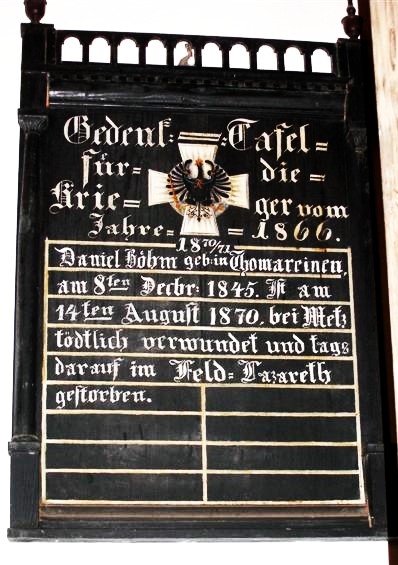 Gedenk- Tafel=
für- die =
Krie= ger vom
Jahre= = 1866.
1870/71
Daniel Böhm geb: in Thomareinen,
am 8ten Decbr: 1845. Ist am
14ten August 1870. bei Metz
tödtlich verwundet und tags
darauf im Feld= Lazareth
gestorben.